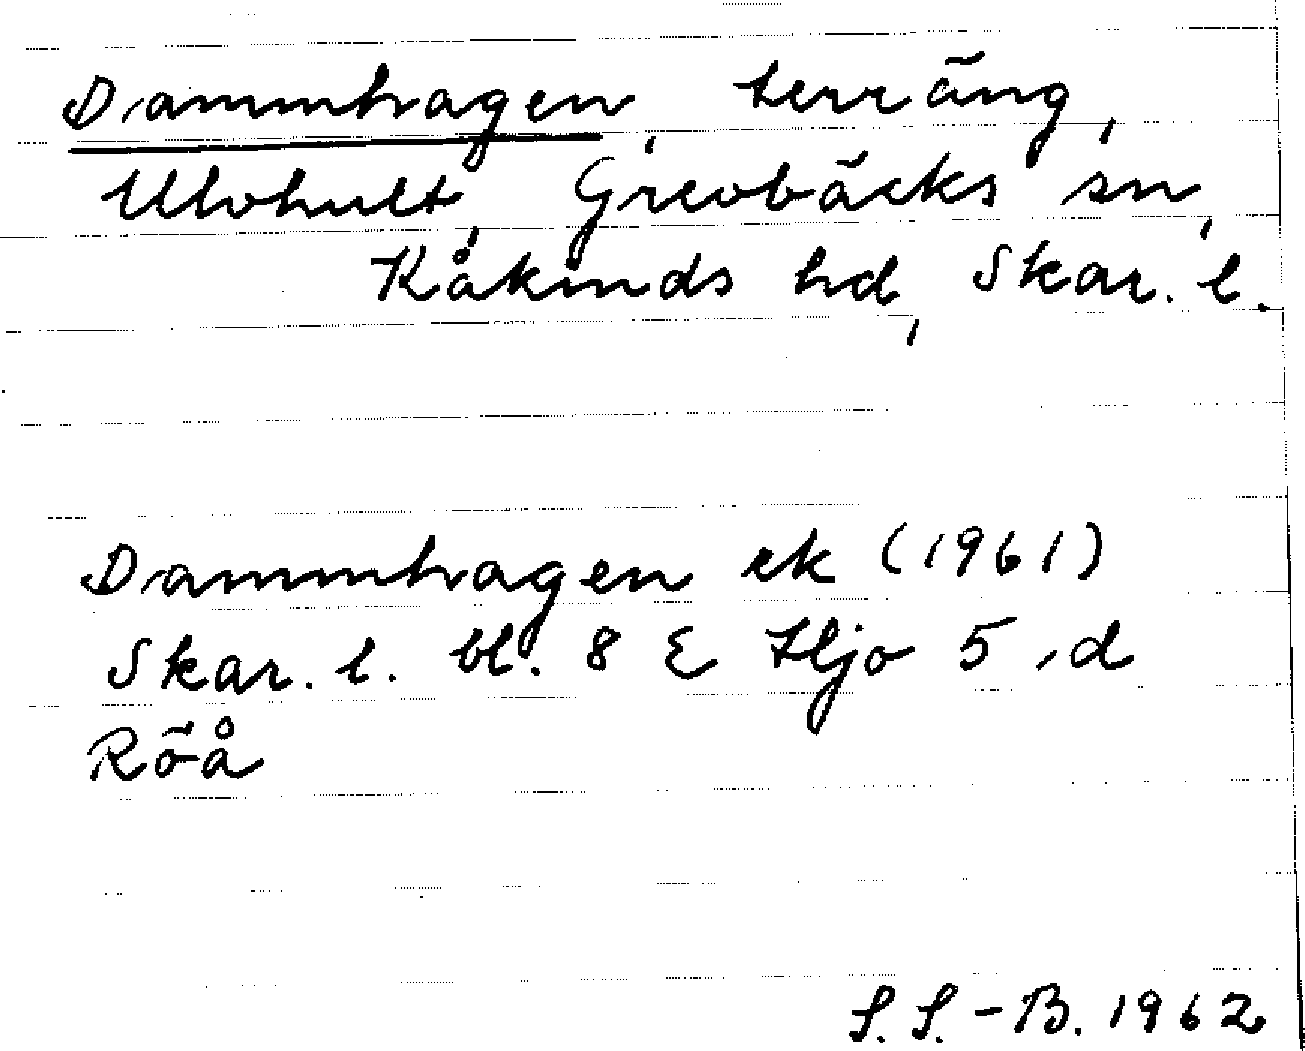 Dammhagen, terräng,
Ulvhult, Grevbäcks sn,
Kåkinds hd, Skar. l.
Dammhagen ek (1961)
Skar. l. bl. 8 E Hjo 5 d
Röå
S. S.-B. 1962